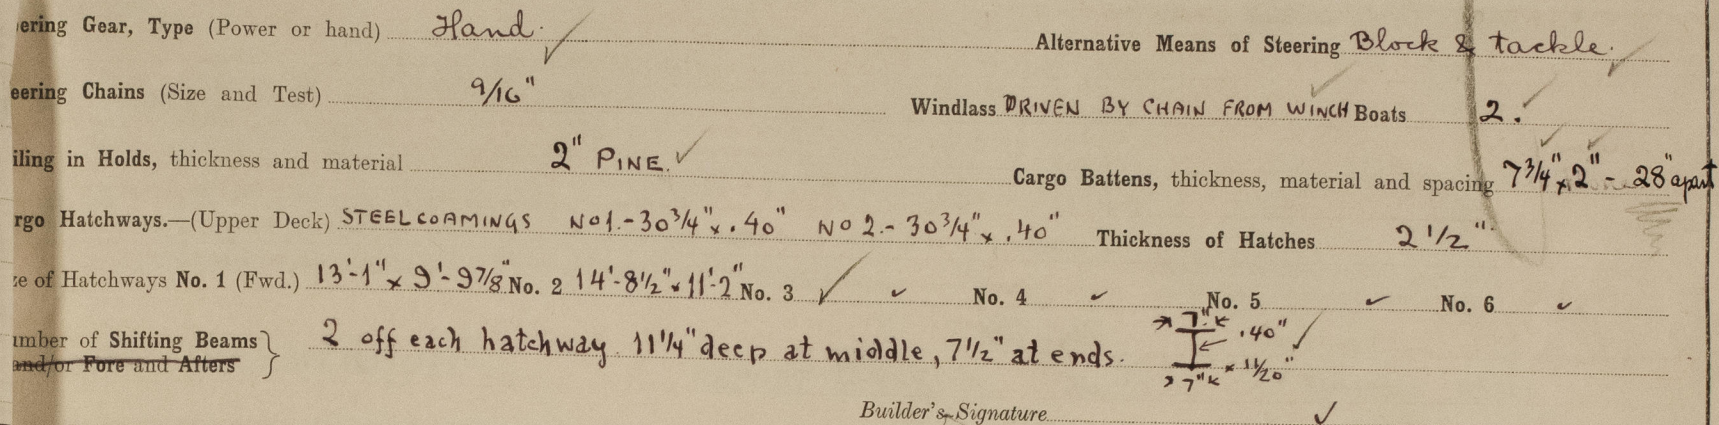 ering Gear, Type (Power or hand) Hand. Alternative Means of Steering Block & tackle.
eering Chains (Size and Test) 9/16" Windlass DRIVEN BY CHAIN FROM WINCH Boats 2.
iling in Holds, thickness and material 2" PINE. Cargo Battens, thickness, material and spacing 7 3/4" x 2" - 28" apart
rgo Hatchways.—(Upper Deck) STEEL COAMINGS No 1.- 30 3/4" x .40" No 2.- 30 3/4" x .40" Thickness of Hatches 2 1/2"
ze of Hatchways No. 1 (Fwd.) 13'-1" x 9'-9 7/8" No. 2 14'-8 1/2" x 11'-2" No. 3 No. 4 No. 5 No. 6
umber of Shifting Beams 2 off each hatchway 11 1/4" deep at middle, 7 1/2" at ends.
and/or Fore and Afters
7"
.40"
7" x 11/20"
Builder's Signature